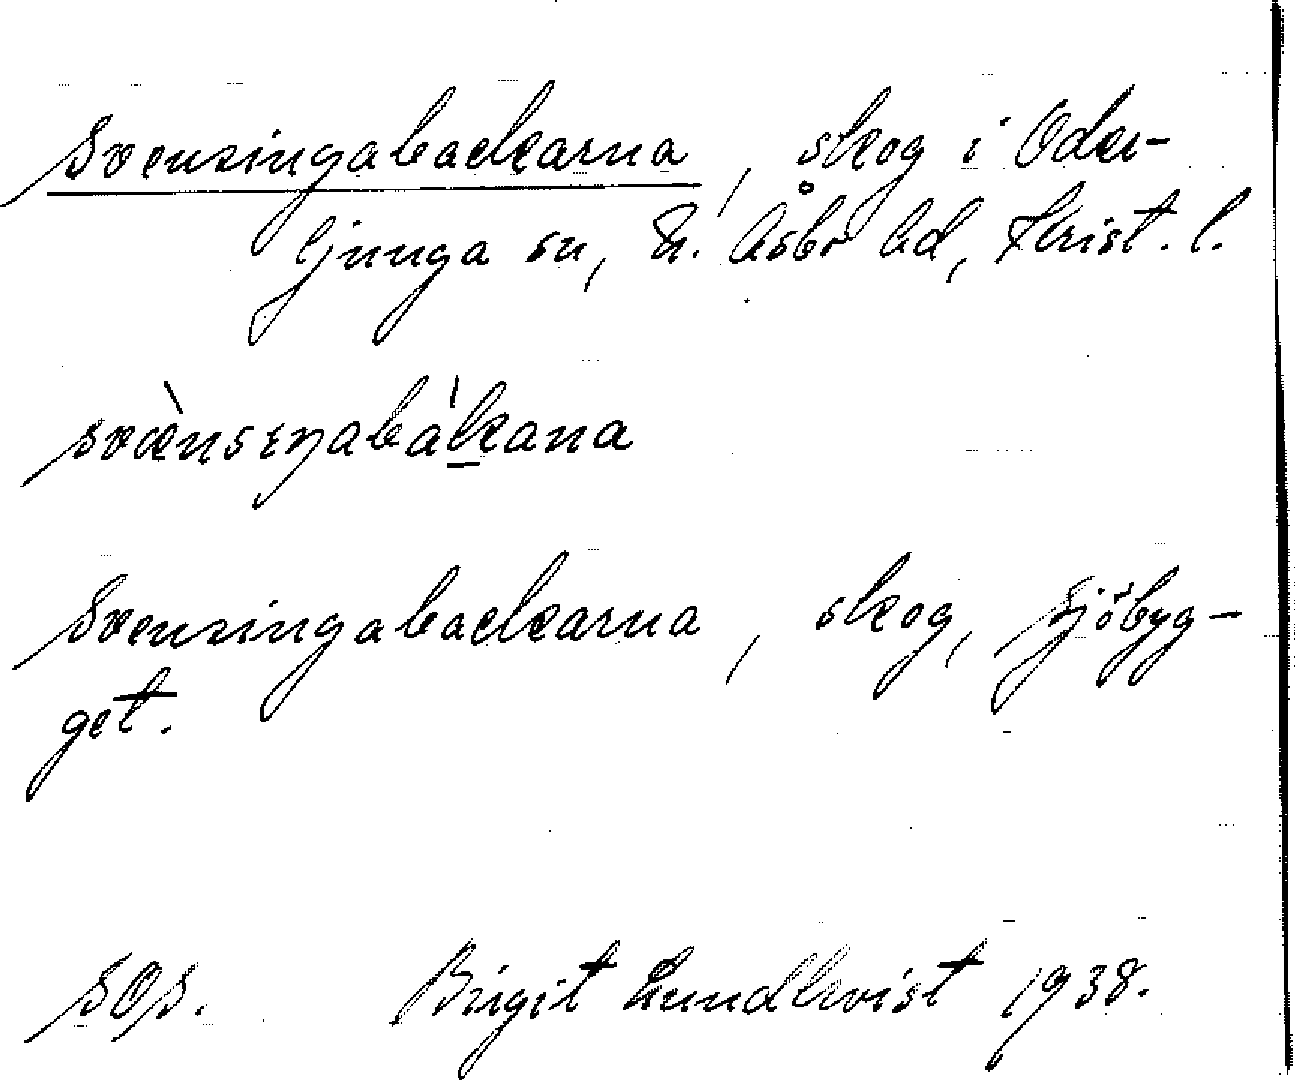 Svensingabackarna, skog i Oder-
ljunga sn, N. Åsbo hd, Krist. l.
svæ̀nsɪŋabákana
Svensingabackarna, skog, Sjöbyg-
get.
SOS. Birgit Lundkvist 1938.